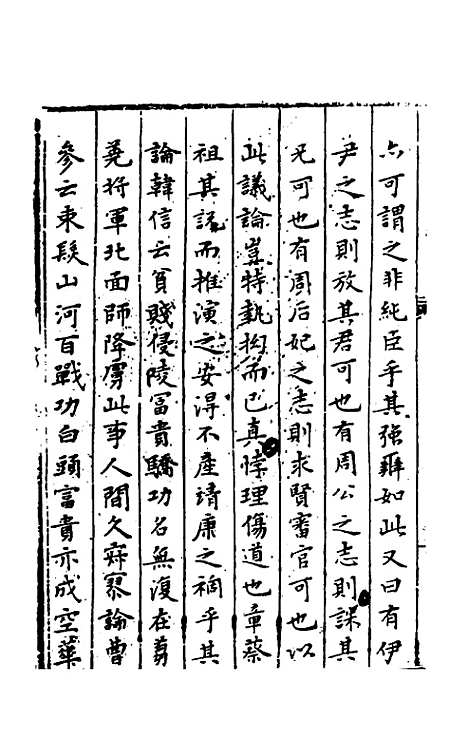 亦可謂之非純臣乎其強辯如此又曰有伊
尹之志則放其君可也有周公之志則誅其
兄可也有周后妃之志則求賢審官可也以
此議論豈特執拗而已真悖理傷道也章蔡
祖其說而推演之安得不產靖康之禍乎其
論韓信云貧賤侵陵富貴驕功名無復在芻
蕘將軍北面師降虜此事人間久寂寥論曹
參云束髮山河百戰功白頭富貴亦成空華